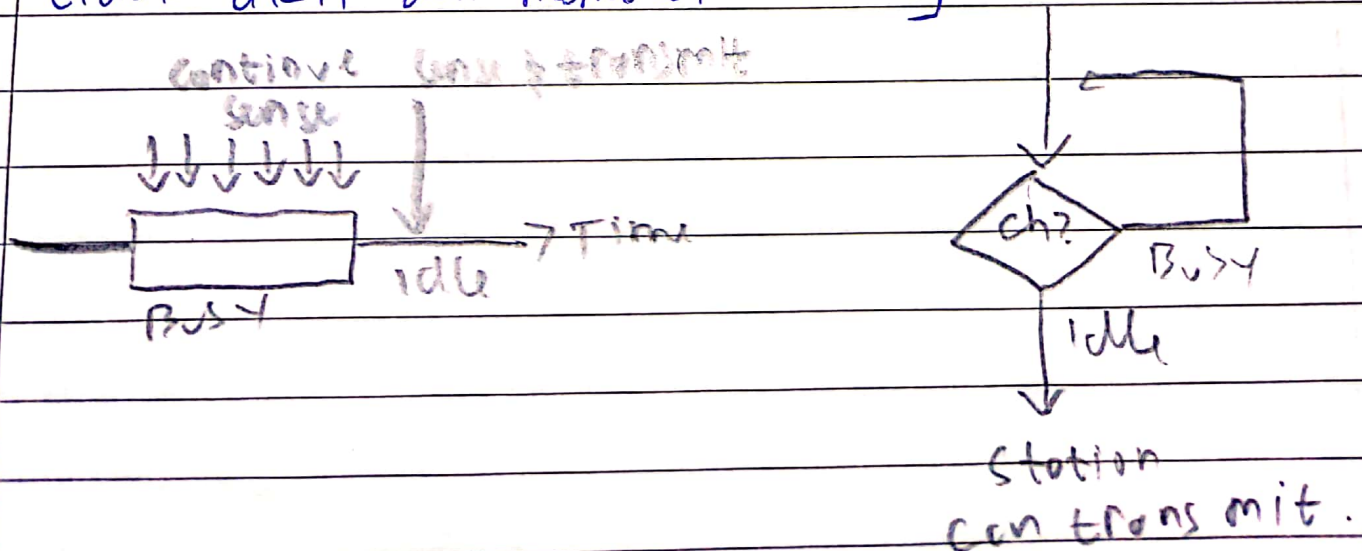 continue sense & transmit
sense
Time
idle
Busy
ch?
Busy
idle
station
can transmit.